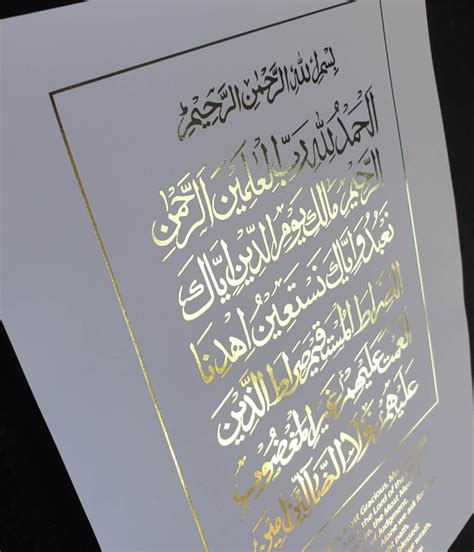 بسم الله الرحمن الرحيم
الحمد لله رب العلمين الرحمن
الرحيم مالك يوم الدين اياك
نعبد واياك نستعين اهدنا
الصراط المستقيم صراط الذين
انعمت عليهم غير المغضوب
عليهم ولا الضالين امين
Most Gracious, Mo
the Lord of the
the Most Merc
of Judgment.
Alone we ask for
path.